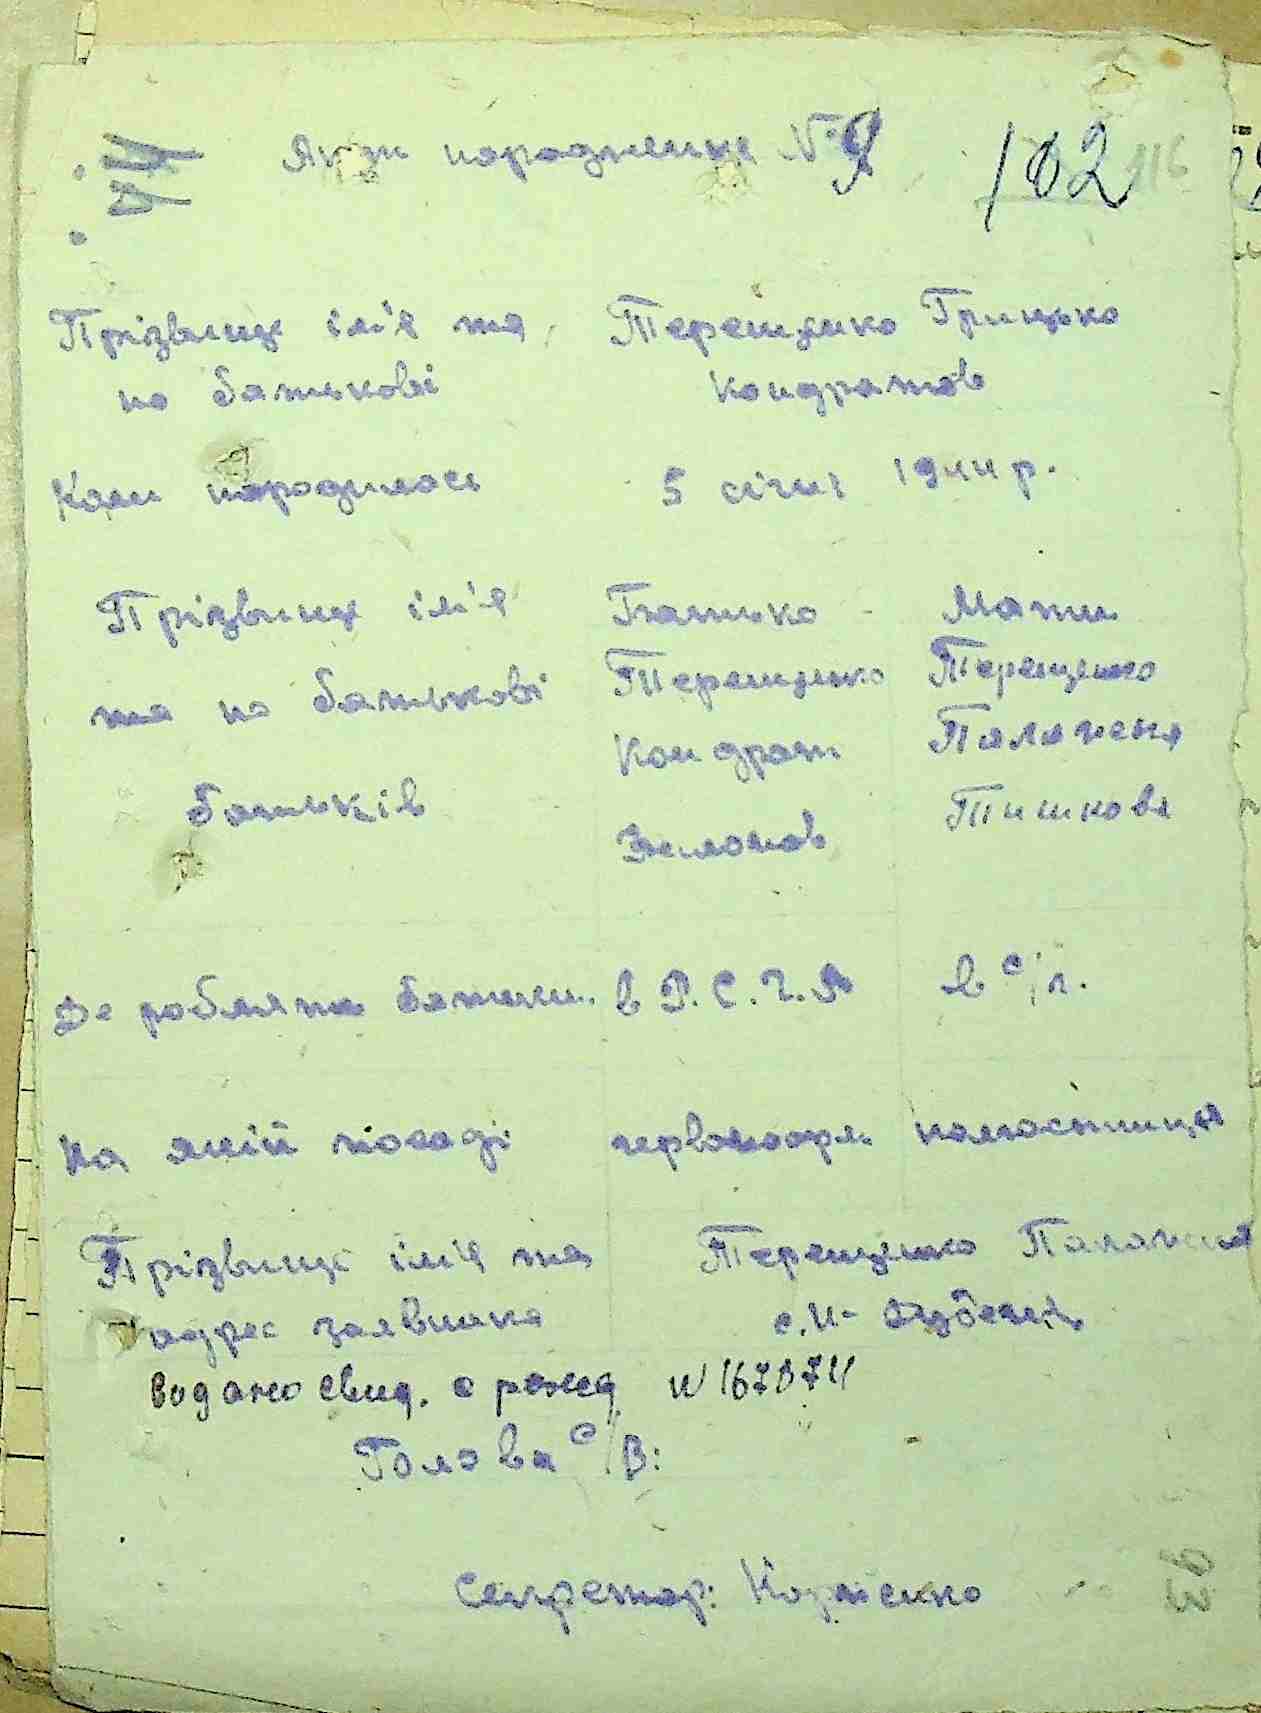 Акт народження № 9 102 116
Прізвище ім'я та Терещенко Грицько
по батькові Кондратов
Коли народилось 5 січня 1944 р.
Прізвище ім'я Батько - Мати
та по батькові Терещенко Терещенко
батьків Кондрат Палажка
Тишкова
Де роблять батьки. в Р.С.Ч.А в с/г.
На якій посаді червоноарм. колгоспниця
Прізвище ім'я та Терещенко Палажка
адрес заявника
Видано свид. о рожд. N
Голова С/В:
Секретар: